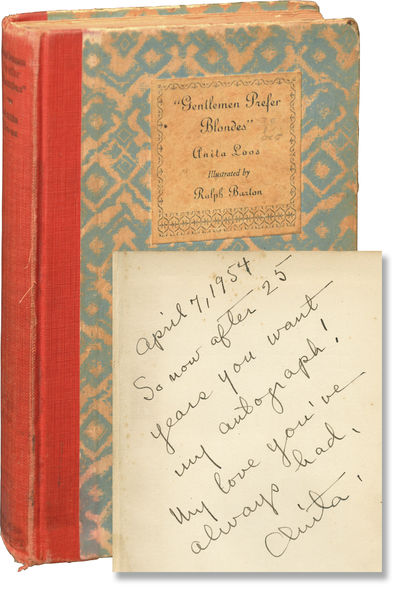 "Gentlemen Prefer
Blondes"
Anita Loos
Illustrated by
Ralph Barton
April 7, 1954
So now after 25
years you want
my autograph!
My love you've
always had.
Anita.